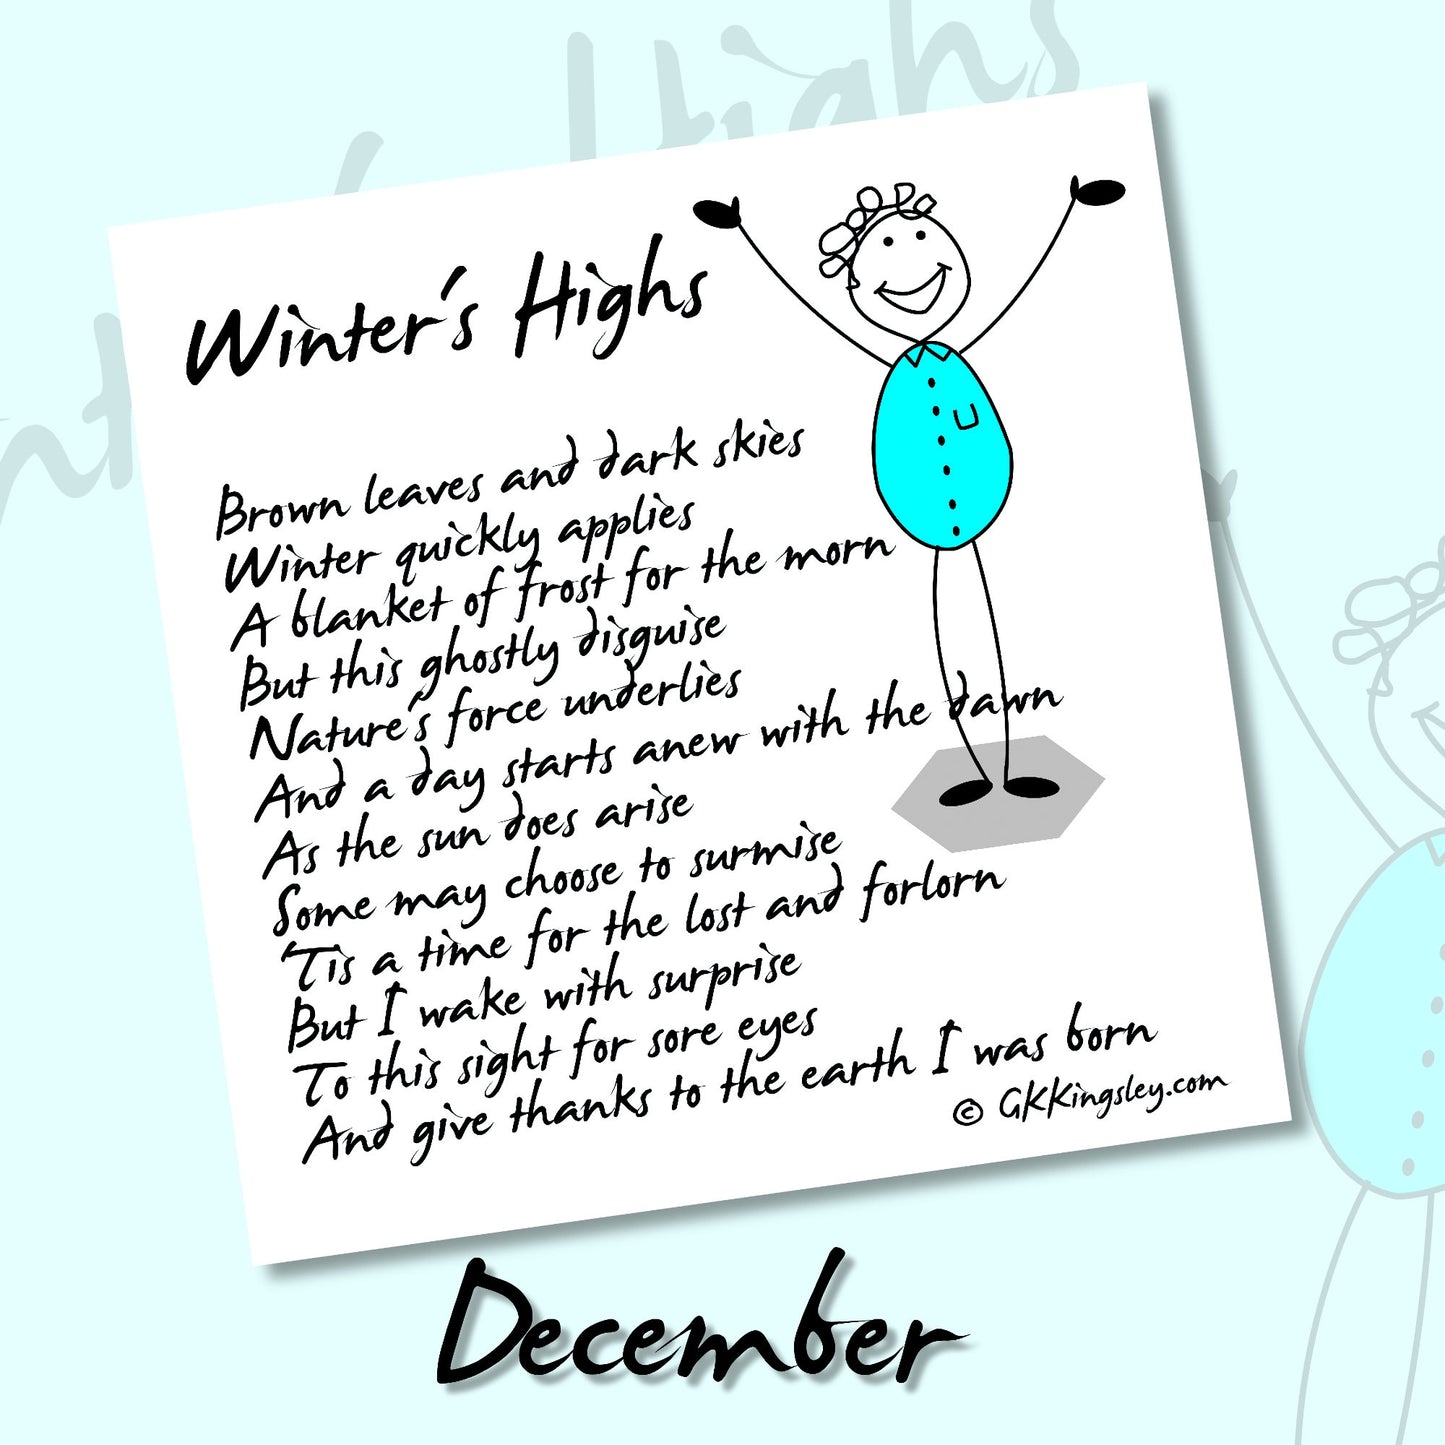 Winter's Highs
Brown leaves and dark skies
Winter quickly applies
A blanket of frost for the morn
But this ghostly disguise
Nature's force underlies
And a day starts anew with the dawn
As the sun does arise
Some may choose to surmise
'Tis a time for the lost and forlorn
But I wake with surprise
To this sight for sore eyes
And give thanks to the earth I was born
© GKKingsley.com
December